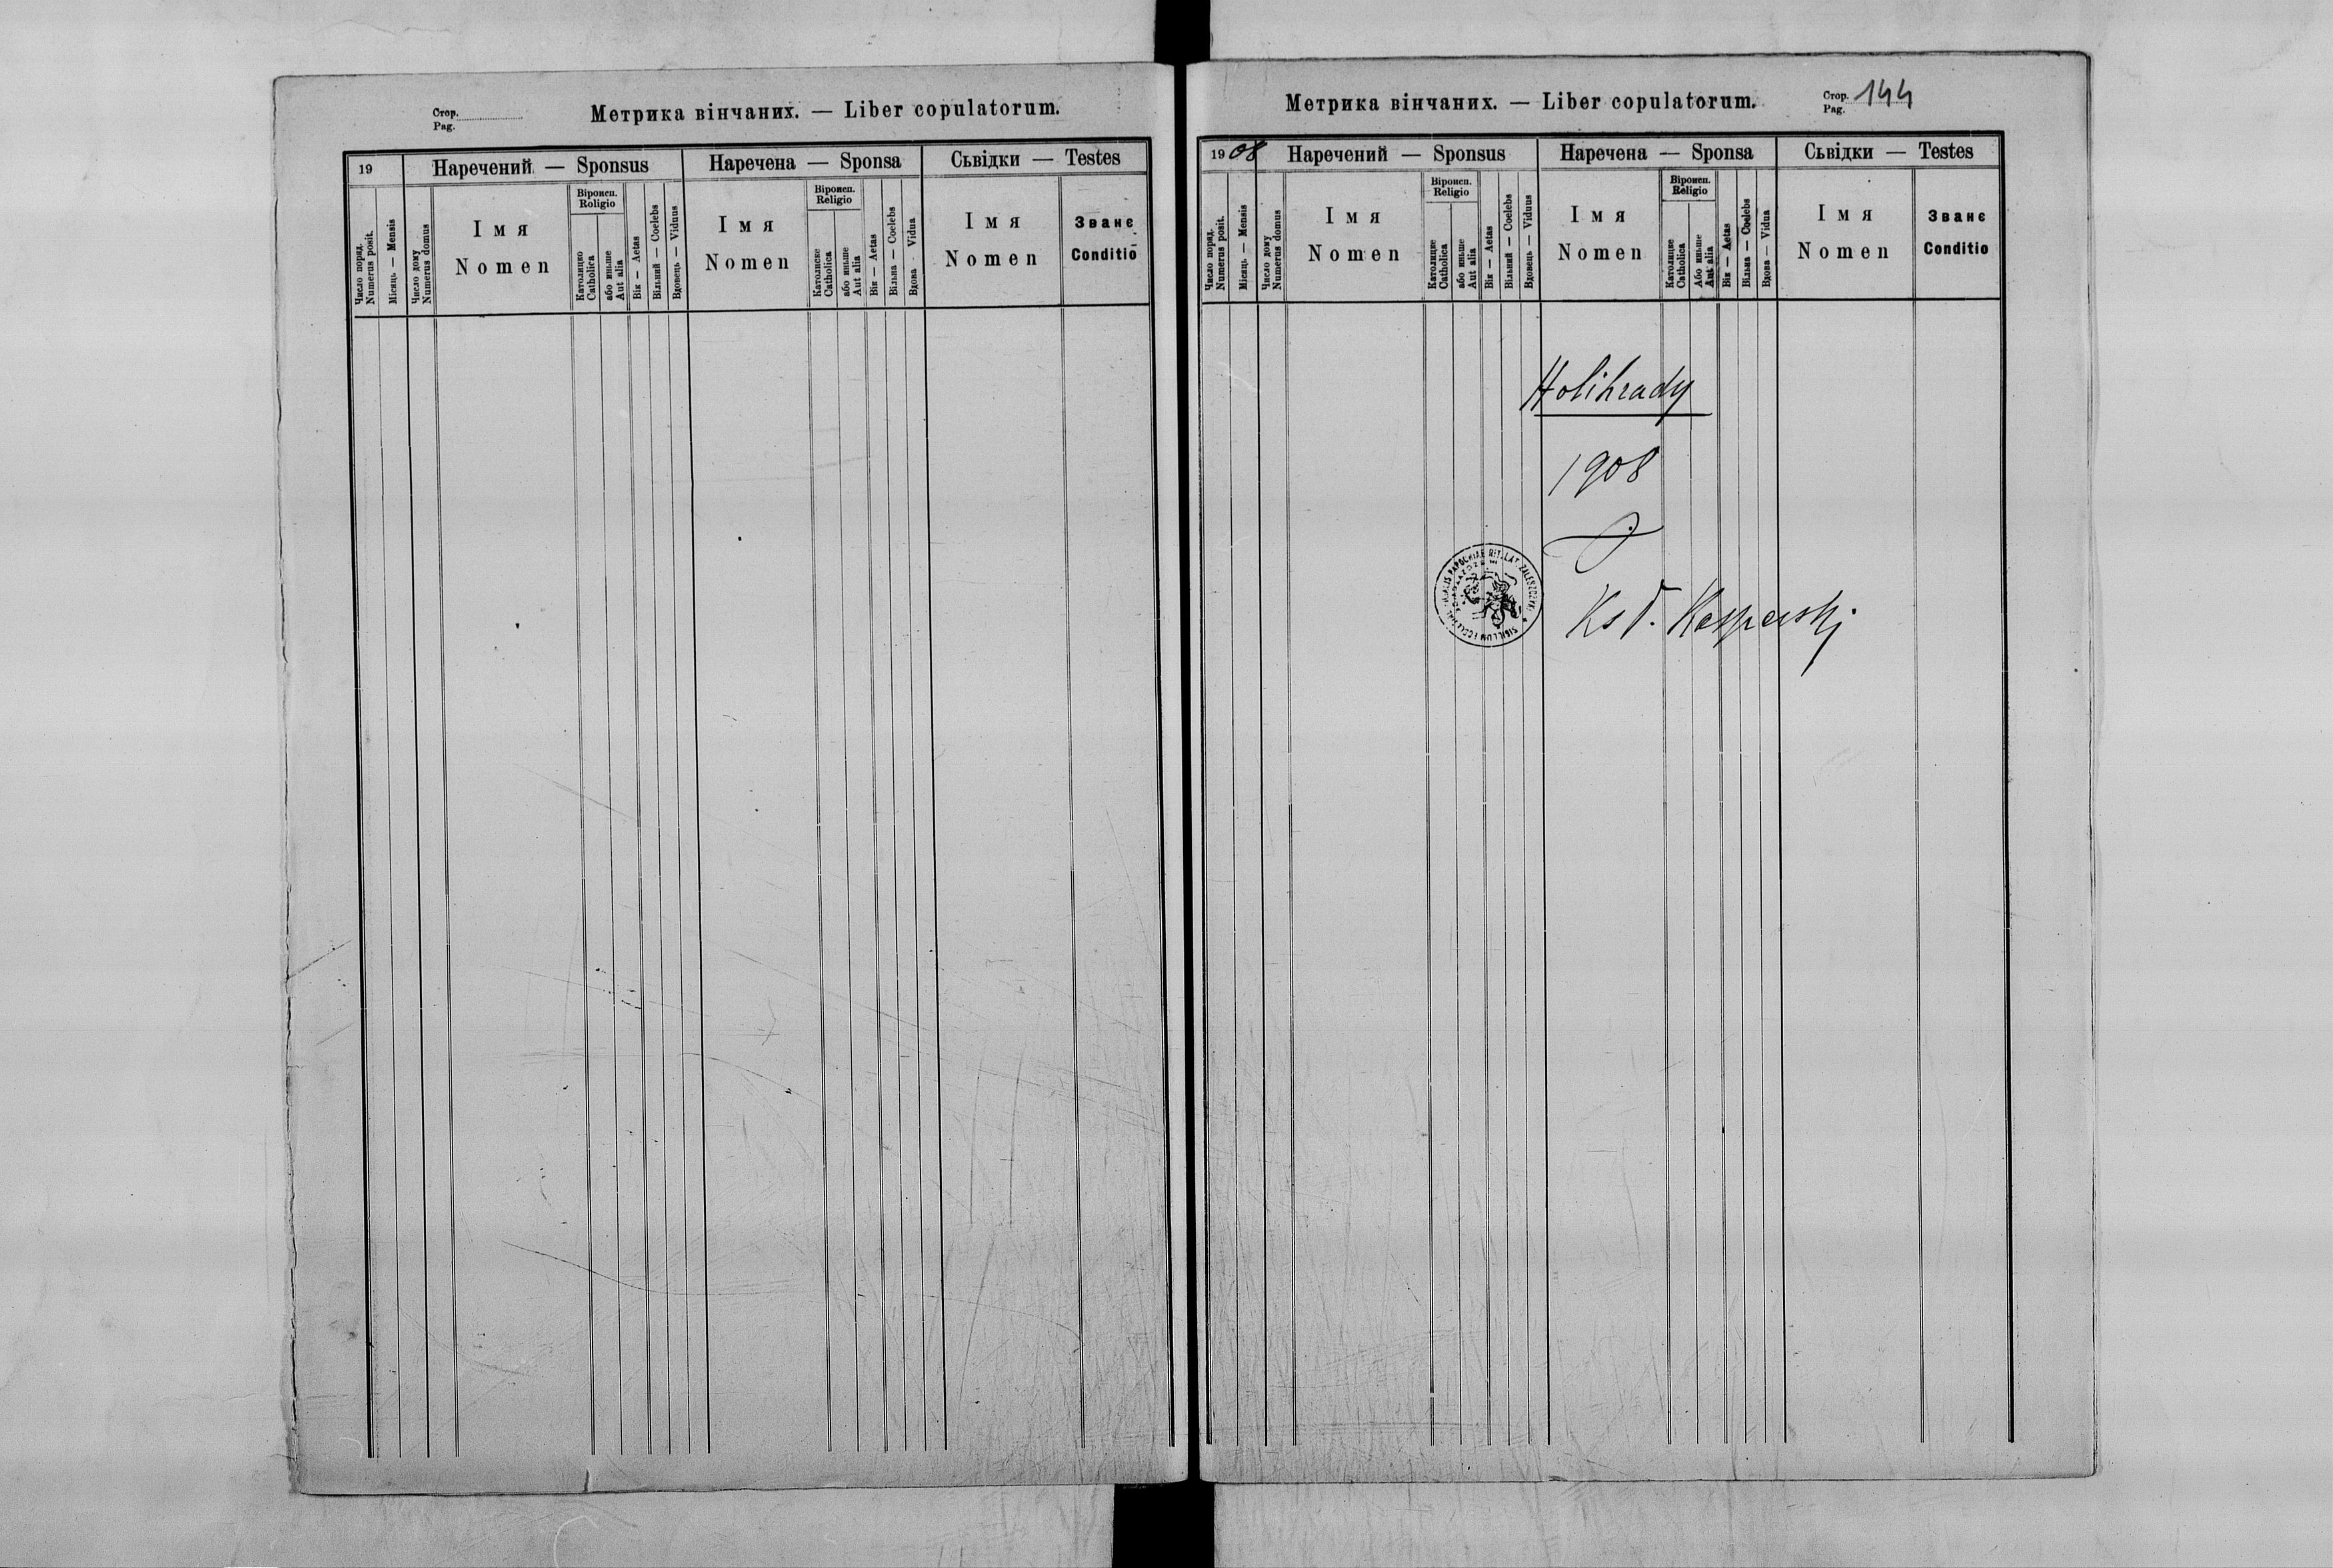 Стор.
Pag.
Метрика вінчаних. — Liber copulatorum.
19
Наречений — Sponsus
Наречена — Sponsa
Сьвідки — Testes
Число поряд.
Numerus posit.
Місяць — Mensis
Число дому
Numerus domus
Імя
Nomen
Віроисп.
Religio
Католицке
Catholica
або иньше
Aut alia
Вік — Aetas
Вільний — Coelebs
Вдовець — Viduus
Імя
Nomen
Віроисп.
Religio
Католицке
Catholica
або иньше
Aut alia
Вік — Aetas
Вільна — Coelebs
Вдова — Vidua
Імя
Nomen
Званє
Conditio
Метрика вінчаних. — Liber copulatorum.
Стор.
Pag. 144
1908
Наречений — Sponsus
Наречена — Sponsa
Сьвідки — Testes
Число поряд.
Numerus posit.
Місяць — Mensis
Число дому
Numerus domus
Імя
Nomen
Віроисп.
Religio
Католицке
Catholica
або иньше
Aut alia
Вік — Aetas
Вільний — Coelebs
Вдовець — Viduus
Імя
Nomen
Віроисп.
Religio
Католицке
Catholica
Або иньше
Aut alia
Вік — Aetas
Вільна — Coelebs
Вдова — Vidua
Імя
Nomen
Званє
Conditio
Holihrady
1908
Ks. Kasperski
SIGILLUM PAROCHIAE RIT. LAT.